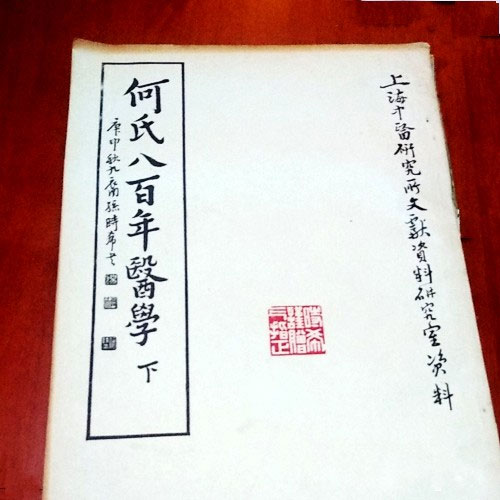 上海中醫研究所文獻資料研究室資料
何氏八百年醫學 下
庚申秋九裔孫時希書